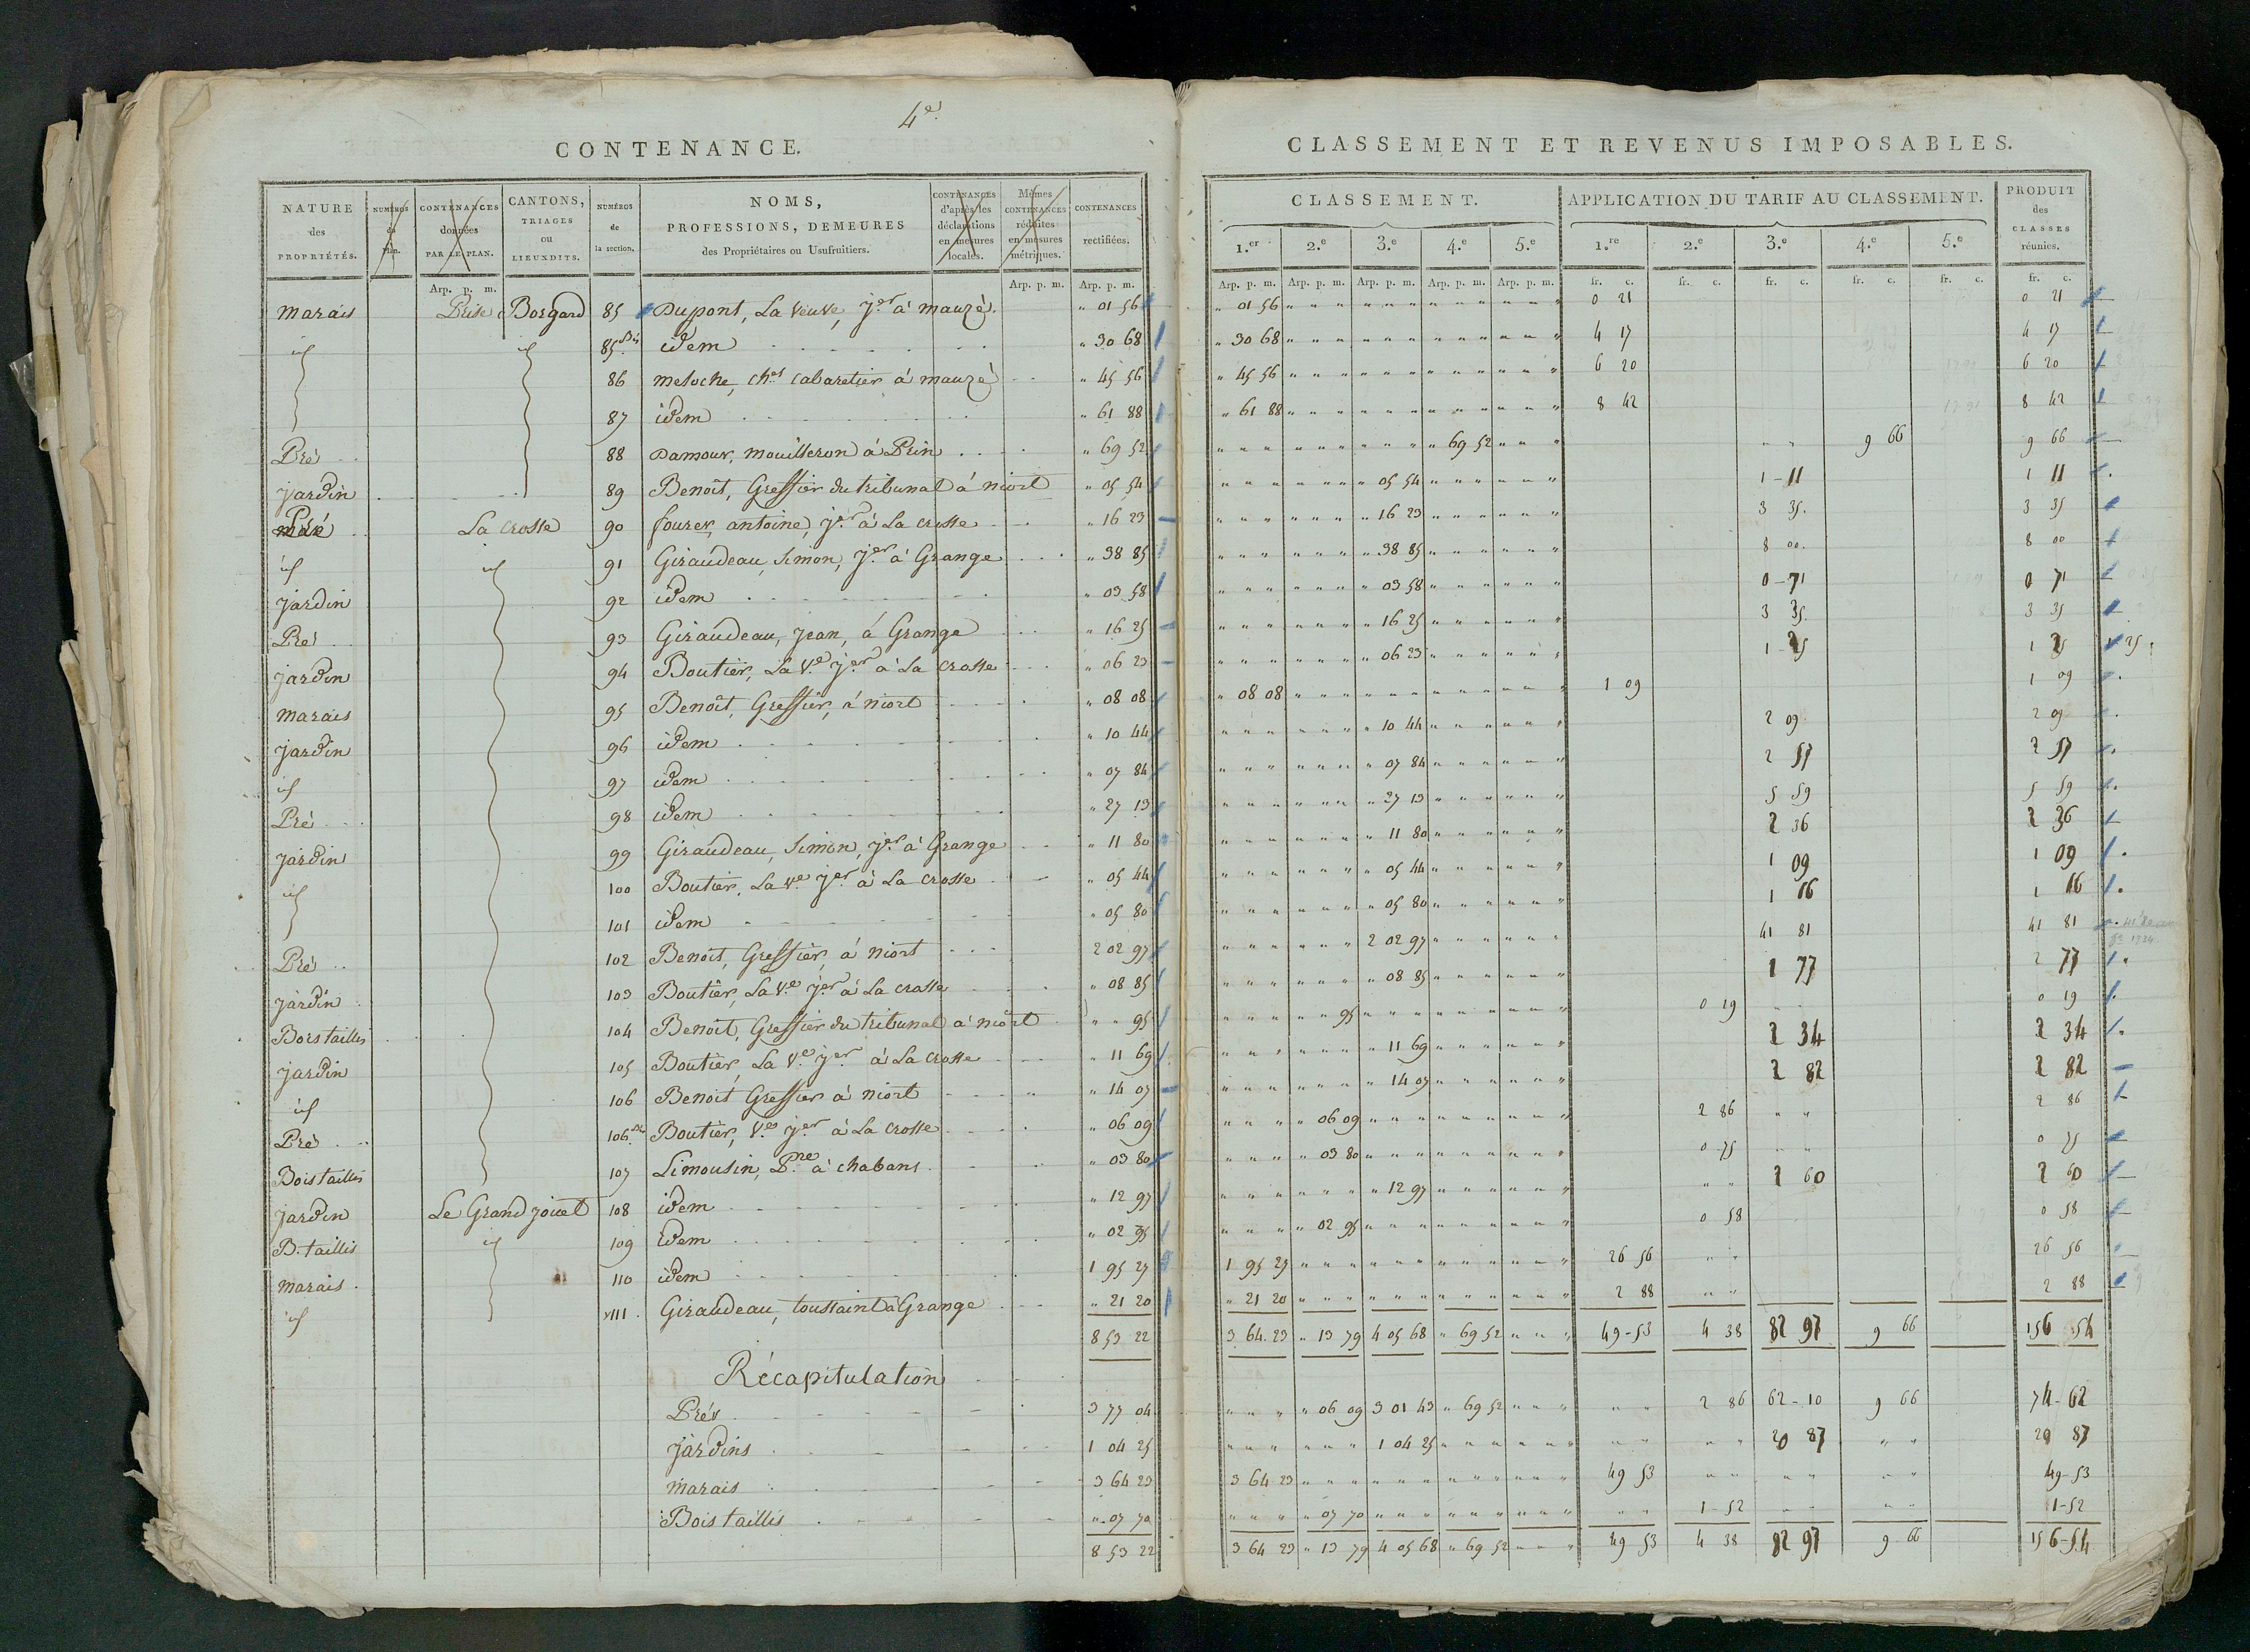 4e.
CONTENANCE.
NATURE des PROPRIÉTÉS. NUMÉROS du Plan. CONTENANCES données PAR LE PLAN. CANTONS, TRIAGES OU LIEUXDITS. NUMÉROS de la section. NOMS, PROFESSIONS, DEMEURES des Propriétaires ou Usufruitiers. CONTENANCES d'après les déclarations en mesures locales. Mêmes CONTENANCES réduites en mesures métriques. CONTENANCES rectifiées.
Arp. p. m. Arp. p. m. Arp. p. m.
marais Prise Bosgard 85 Dupont, La Veuve, Jer à mauzé. " 01 56
id id 85 Bis idem " 30 68
86 meloche, chel cabaretier à mauzé " 45 56
87 idem " 61 88
Pré 88 Damour, mouilleron à Prin " 69 52
jardin 89 Benoît, Greffier du tribunal à niort " 05 54
Pré La crosse 90 fourer, antoine, Jer à La crosse " 16 23
id id 91 Giraudeau, Simon, Jer à Grange " 38 85
jardin 92 idem " 03 58
Pré 93 Giraudeau, Jean, à Grange " 16 25
jardin 94 Boutier, La Ve Jer à La crosse " 06 23
marais 95 Benoît, Greffier, à niort " 08 08
jardin 96 idem " 10 44
id 97 idem " 07 84
Pré 98 idem " 27 13
jardin 99 Giraudeau, Simon, Jer à Grange " 11 80
id 100 Boutier, La Ve Jer à La crosse " 05 44
101 idem " 05 80
Pré 102 Benoît, Greffier, à niort 2 02 97
jardin 103 Boutier, La Ve Jer à La crosse " 08 85
Bois taillis 104 Benoît, Greffier du tribunal à niort " " 95
jardin 105 Boutier, La Ve Jer à La crosse " 11 69
id 106 Benoît Greffier à niort " 14 07
Pré 106 Bis Boutier, Ve Jer à La crosse " 06 09
Bois taillis 107 Limousin, Pre à chabans " 03 80
jardin Le Grand jouet 108 idem " 12 97
B. taillis id 109 idem " 02 95
marais 110 idem 1 95 27
id 111 Giraudeau, toussaint à Grange " 21 20
8 53 22
Récapitulation
Prés 3 77 04
Jardins 1 04 25
marais 3 64 23
Bois taillis " 07 70
8 53 22
CLASSEMENT ET REVENUS IMPOSABLES.
CLASSEMENT. APPLICATION DU TARIF AU CLASSEMENT. PRODUIT des CLASSES réunies.
1.er 2.e 3.e 4.e 5.e 1.re 2.e 3.e 4.e 5.e
Arp. p. m. Arp. p. m. Arp. p. m. Arp. p. m. Arp. p. m. fr. c. fr. c. fr. c. fr. c. fr. c. fr. c.
" 01 56 0 21 0 21
" 30 68 4 17 4 17
" 45 56 6 20 6 20
" 61 88 8 42 8 42
" 69 52 9 66 9 66
" 05 54 1-11 1 11
" 16 23 3 35. 3 35
" 38 85 8 00. 8 00
" 03 58 0-71 0 71
" 16 25 3 35. 3 35
" 06 23 1-25 1 25 25
" 08 08 1 09 1 09
" 10 44 2 09 2 09
" 07 84 2 57 2 57
" 27 13 5 59 5 59
" 11 80 2 36 2 36
" 05 44 1 09 1 09
" 05 80 1 16 1 16
2 02 97 41 81 41 81
" 08 85 1 77 2 77
95 0 19 0 19
" 11 69 2 34 2 34
" 14 07 2 82 2 82
" 06 09 2 86 2 86
" 03 80 0-75 0 75
" 12 97 2 60 2 60
" 02 95 0 58 0 58
1 95 27 26 56 26 56
" 21 20 2 88 2 88
3 64.23 " 13 79 4 05 68 " 69 52 49-53 4 38 82 97 9 66 156 54
" 06 09 3 01 43 " 69 52 2 86 62-10 9 66 74-62
1 04 25 20 87 20 87
3 64 23 49 53 49-53
" 07 70 1-52 1-52
3 64 23 " 13 79 4 05 68 " 69 52 49 53 4 38 82 97 9 66 156-54